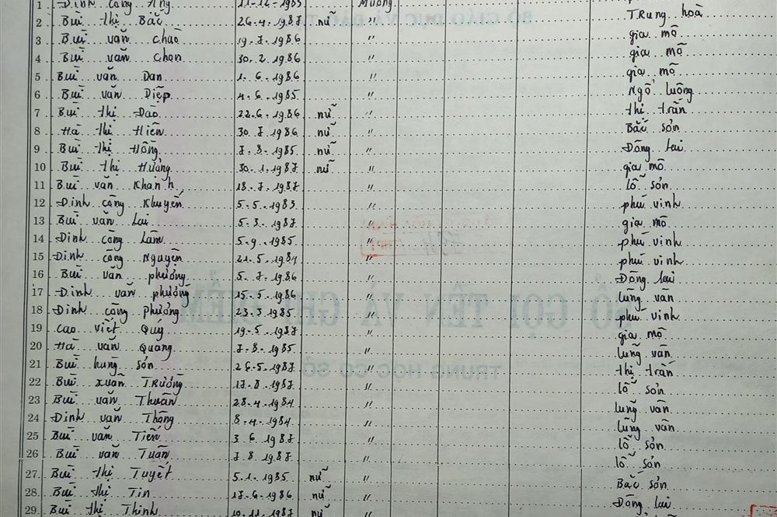 1 Đinh công 11-12-1985 Mường
2 Bùi thị Bắc 26.4.1987 nữ " Trung hoà
3 Bùi văn chào 19.7.1986 " gia mô
4 Bùi văn chọn 30.2.1986 " gia mô
5 Bùi văn Dan 1.6.1986 " gia mô
6 Bùi văn Diệp 4.6.1985 " Ngổ luông
7 Bùi thị Đào 22.6.1986 nữ " thị trấn
8 Hà thị Hiền 30.7.1986 nữ " Bắc sơn
9 Bùi thị Hồng 7.8.1985 nữ " Đông lai
10 Bùi thị Hường 30.1.1987 nữ " gia mô
11 Bùi văn Khanh 18.7.1987 " lỗ sơn
12 Đinh công Khuyến 5.5.1983 " phú vinh
13 Bùi văn Lai 5.3.1987 " gia mô
14 Đinh công Lâm 5.9.1985 " phú vinh
15 Đinh công Nguyện 21.5.1984 " phú vinh
16 Bùi văn phương 5.7.1986 " Đông lai
17 Đinh văn phương 15.5.1986 " lũng vân
18 Đinh công phương 23.3.1985 " phú vinh
19 cao việt Quý 19.5.1987 " gia mô
20 Hà văn Quang 7.8.1985 " lũng vân
21 Bùi hùng sơn 26.5.1987 " thị trấn
22 Bùi xuân Trường 17.8.1987 " lỗ sơn
23 Bùi văn Thuân 28.4.1984 " lũng vân
24 Đinh văn Thông 8.4.1984 " lũng vân
25 Bùi văn Tiến 3.6.1987 " lỗ sơn
26 Bùi văn Tuấn 7.8.1987 " lỗ sơn
27 Bùi thị Tuyết 5.1.1985 nữ " Bắc sơn
28 Bùi thị Tín 17.6.1986 nữ " Đông lai
29 Bùi thị Thinh 10.11.1987 nữ "
SỔ GỌI TÊN VÀ GHI ĐIỂM
TRUNG HỌC CƠ SỞ